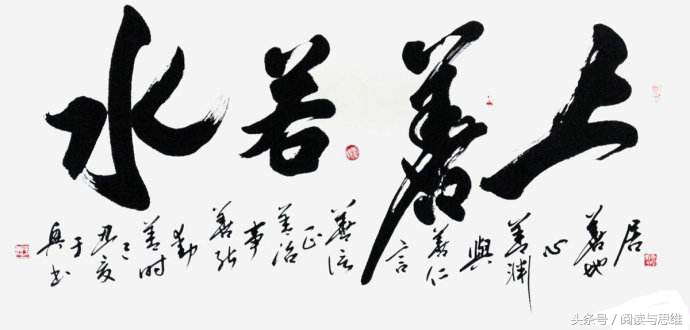 上善若水
居善地心善渊與善仁言善信正善治事善能动善时
头条号／阅读与思维